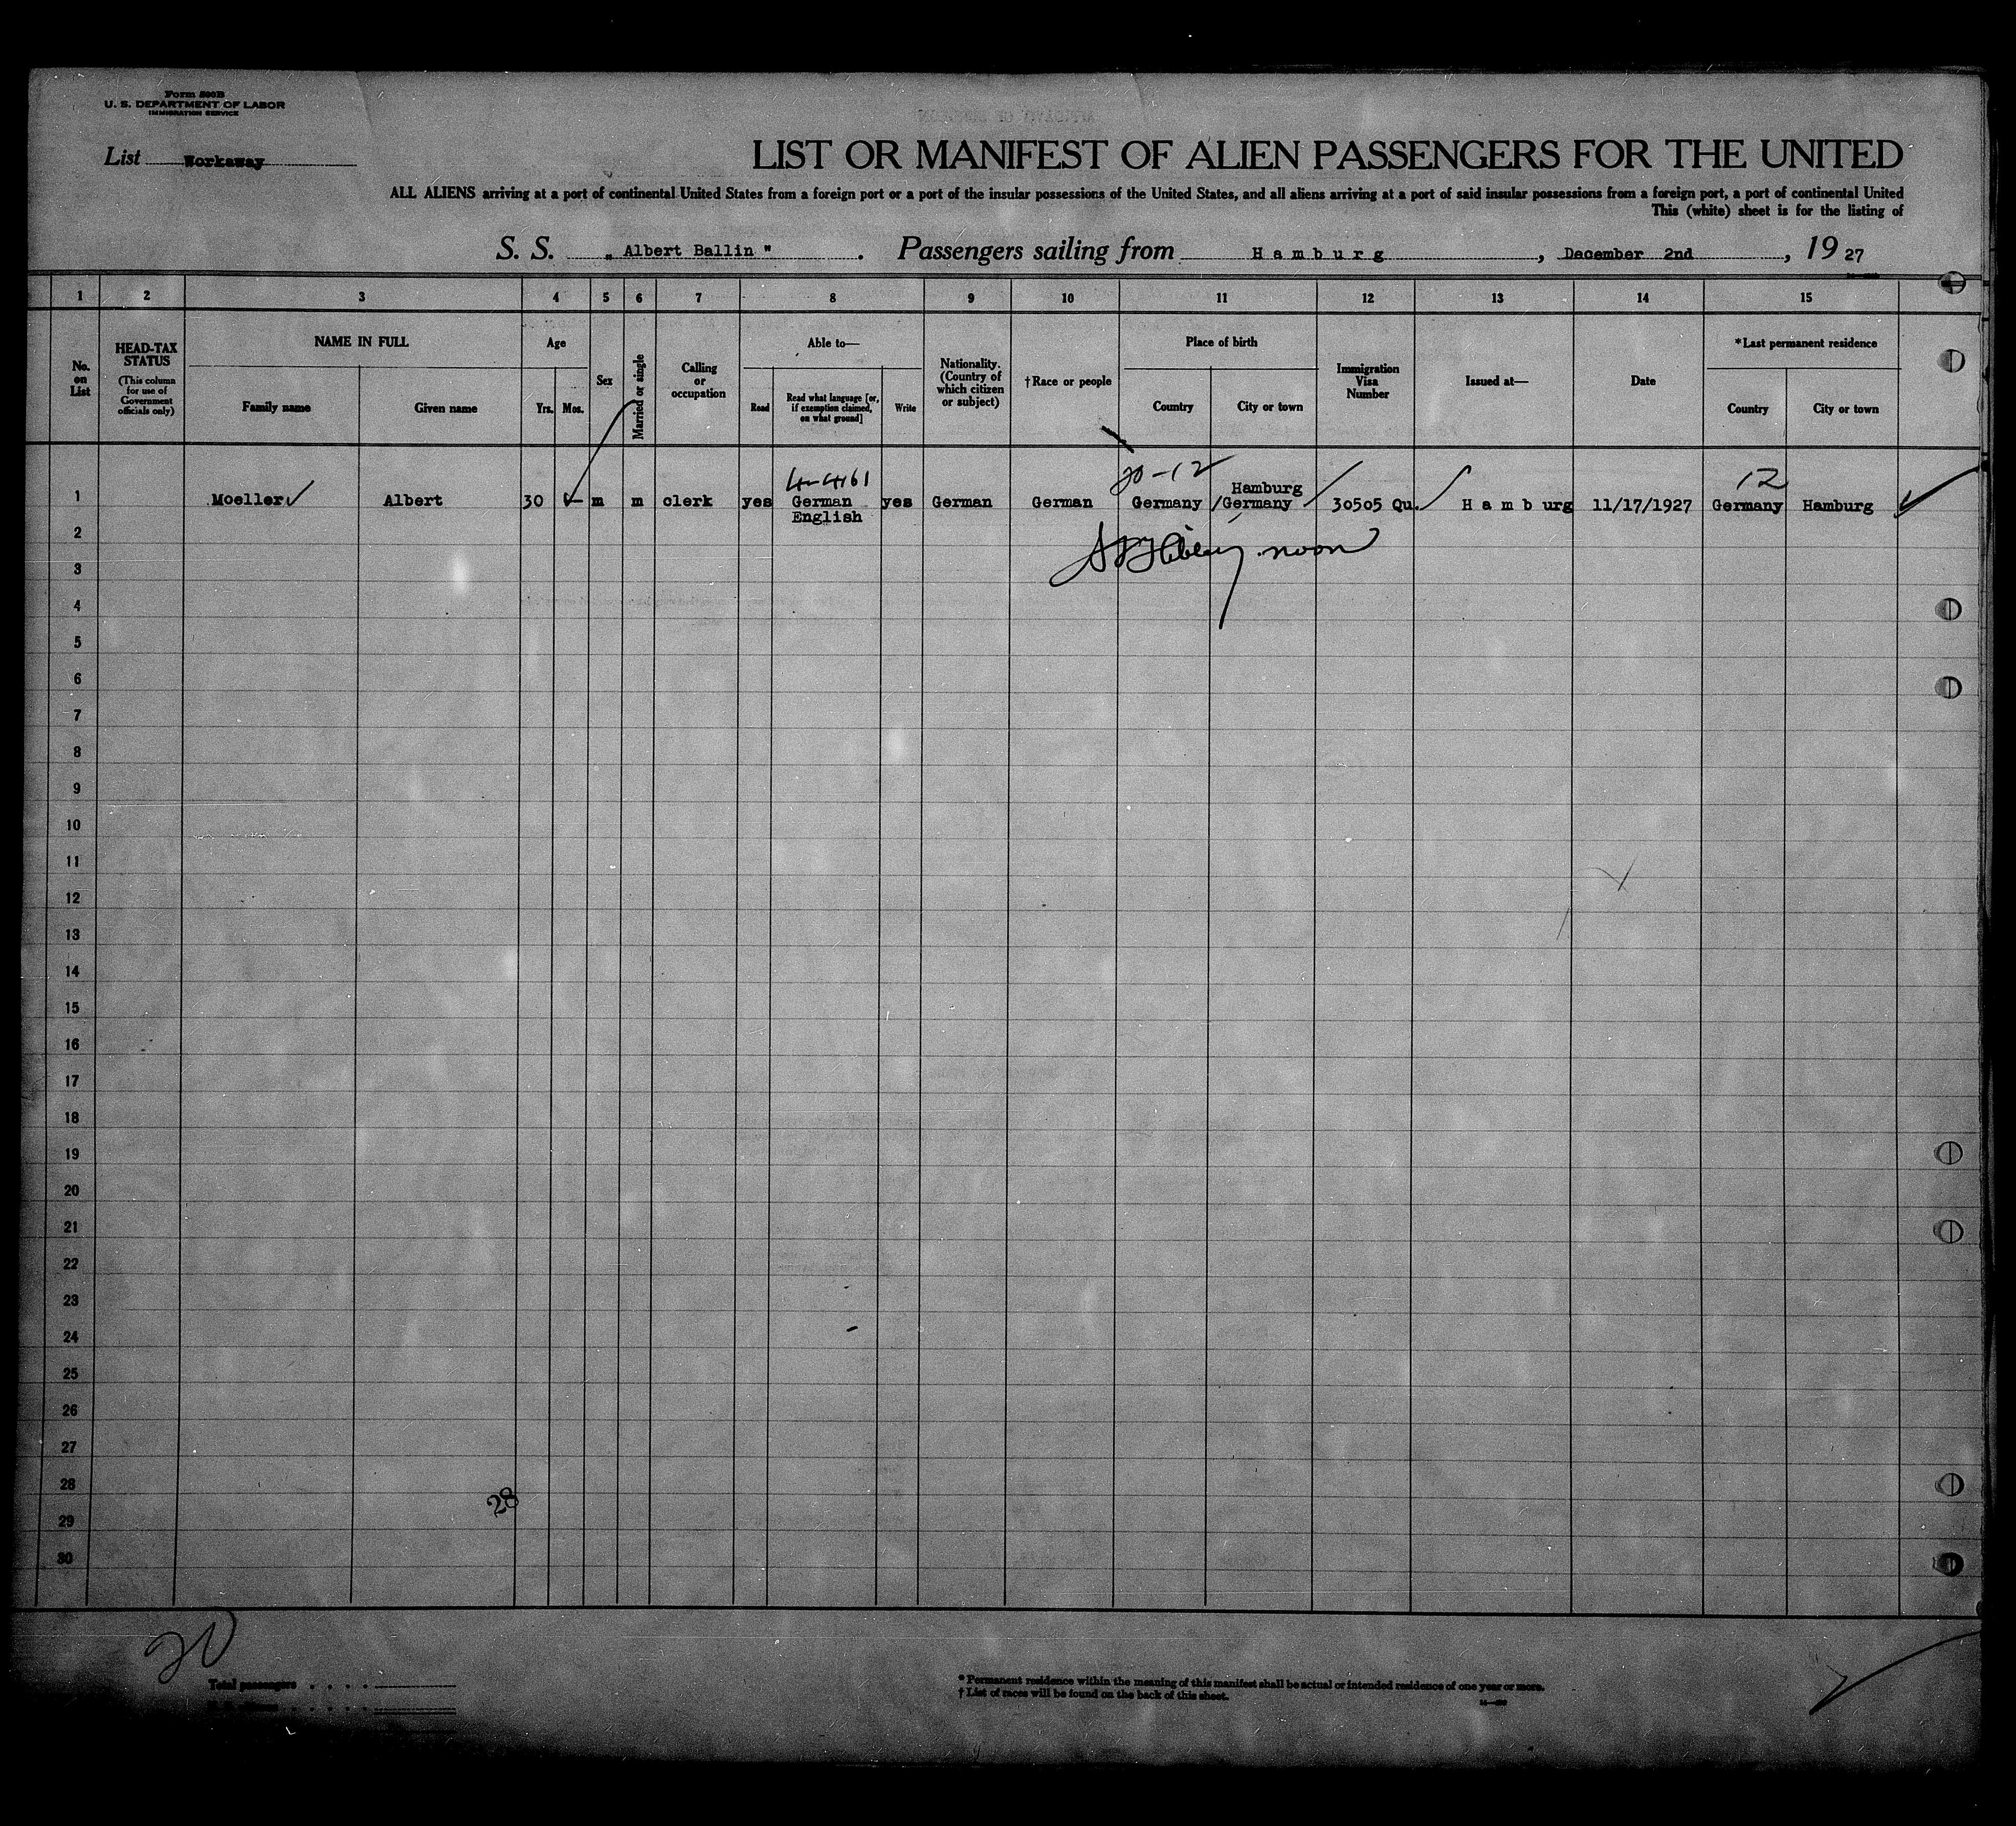 Form 500B
U. S. DEPARTMENT OF LABOR
IMMIGRATION SERVICE
List Workaway
LIST OR MANIFEST OF ALIEN PASSENGERS FOR THE UNITED
ALL ALIENS arriving at a port of continental United States from a foreign port or a port of the insular possessions of the United States, and all aliens arriving at a port of said insular possessions from a foreign port, a port of continental United
This (white) sheet is for the listing of
S. S. „ Albert Ballin " . Passengers sailing from H a m b u r g , December 2nd , 19 27
1 2 3 4 5 6 7 8 9 10 11 12 13 14 15
No. on List
HEAD-TAX STATUS
(This column for use of Government officials only)
NAME IN FULL
Family name Given name
Age
Yrs. Mos.
Sex
Married or single
Calling or occupation
Able to—
Read
Read what language [or, if exemption claimed, on what ground]
Write
Nationality. (Country of which citizen or subject)
†Race or people
Place of birth
Country City or town
Immigration Visa Number
Issued at—
Date
*Last permanent residence
Country City or town
4-4161 20-12 12
1 Moeller Albert 30 m m clerk yes German English yes German German Germany Hamburg /Germany 30505 Qu. H a m b urg 11/17/1927 Germany Hamburg
noon
2
3
4
5
6
7
8
9
10
11
12
13
14
15
16
17
18
19
20
21
22
23
24
25
26
27
28
28
29
30
20
Total passengers . . . .
* Permanent residence within the meaning of this manifest shall be actual or intended residence of one year or more.
† List of races will be found on the back of this sheet.